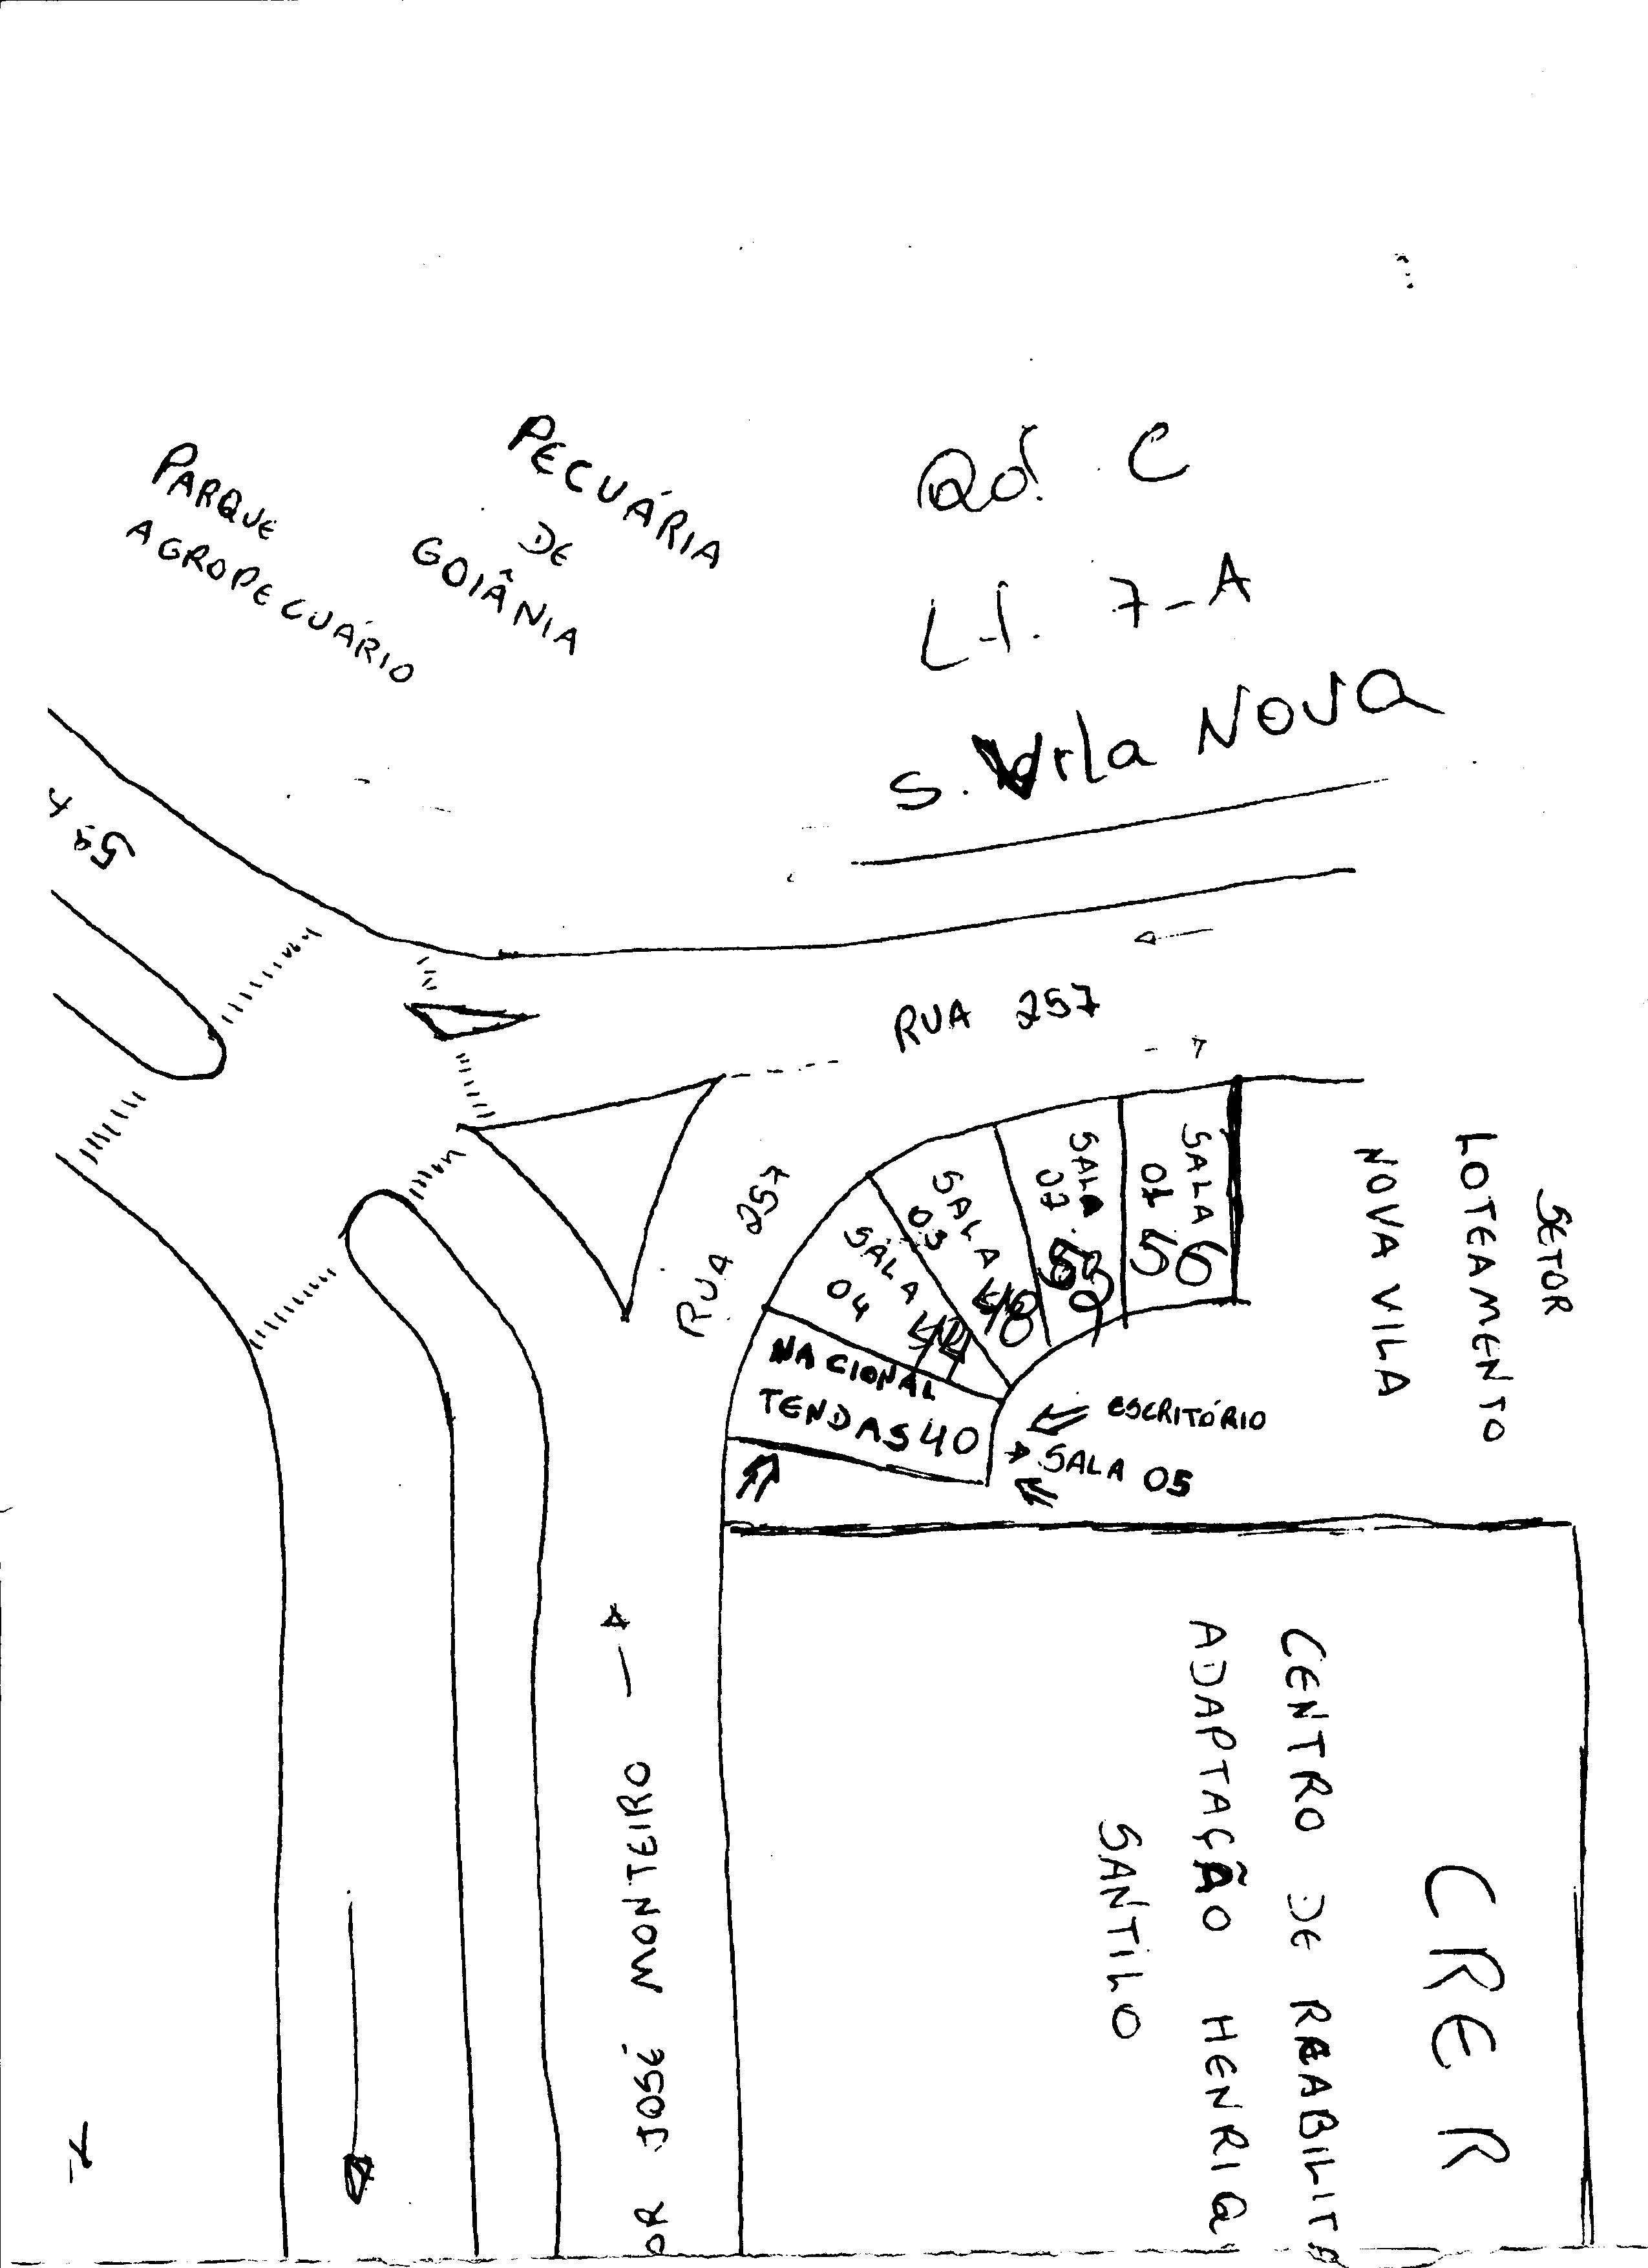 PARQUE
AGROPECUÁRIO
PECUÁRIA
DE
GOIÂNIA
Qd. C
Lt. 7-A
S. Vila Nova
5ª
RUA 257
RUA 257
SALA
01
56
SALA
02
SALA
03
48
SALA
04
44
NACIONAL
TENDAS 40
ESCRITÓRIO
SALA 05
SETOR
LOTEAMENTO
NOVA VILA
OR JOSÉ MONTEIRO
CRER
CENTRO DE REABILIT
ADAPTAÇÃO HENRIQ
SANTILO